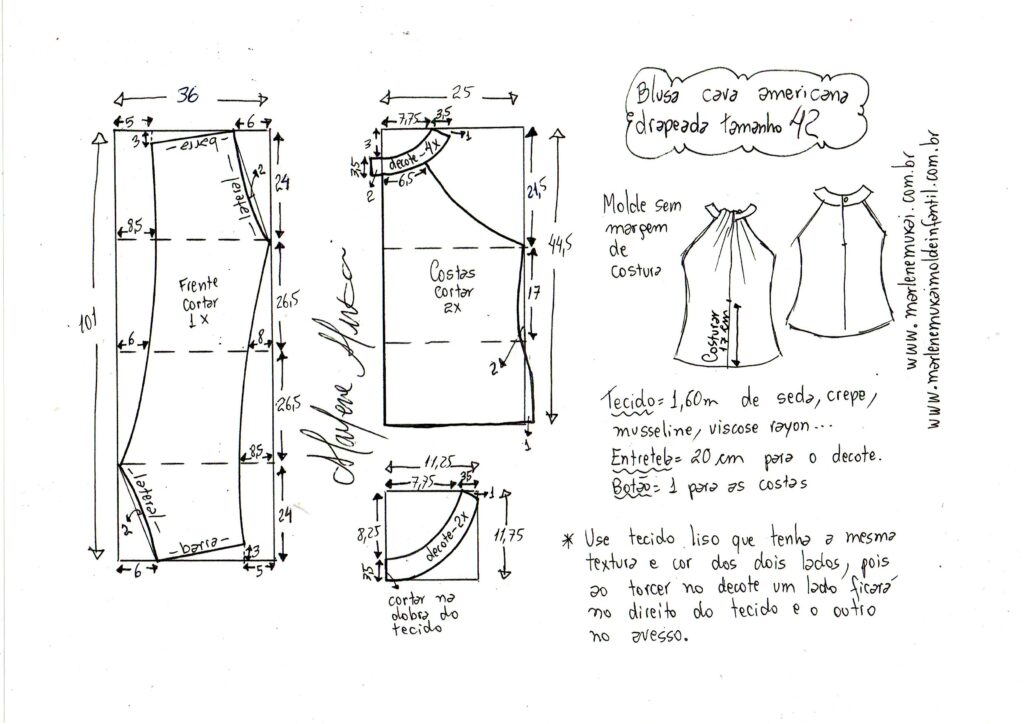 Blusa cava americana
drapeada tamanho 42
36
5
6
3
-barra-
-lateral-
2
24
8,5
Frente
cortar
1x
26,5
101
6
8
26,5
8,5
-lateral-
2
24
-barra-
3
6
5
Marlene Mukai
25
7,75
3,5
1
3
3,5
decote-4x
6,5
2
21,5
44,5
Costas
cortar
2x
17
2
1
11,25
7,75
3,5
1
8,25
decote-2x
11,75
3,5
cortar na
dobra do
tecido
Molde sem
margem
de
costura
Costurar
17 cm
www.marlenemukai.com.br
www.marlenemukaimoldeinfantil.com.br
Tecido= 1,60m de seda, crepe,
musseline, viscose rayon...
Entretela= 20 cm para o decote.
Botão= 1 para as costas
* Use tecido liso que tenha a mesma
textura e cor dos dois lados, pois
ao torcer no decote um lado ficará
no direito do tecido e o outro
no avesso.